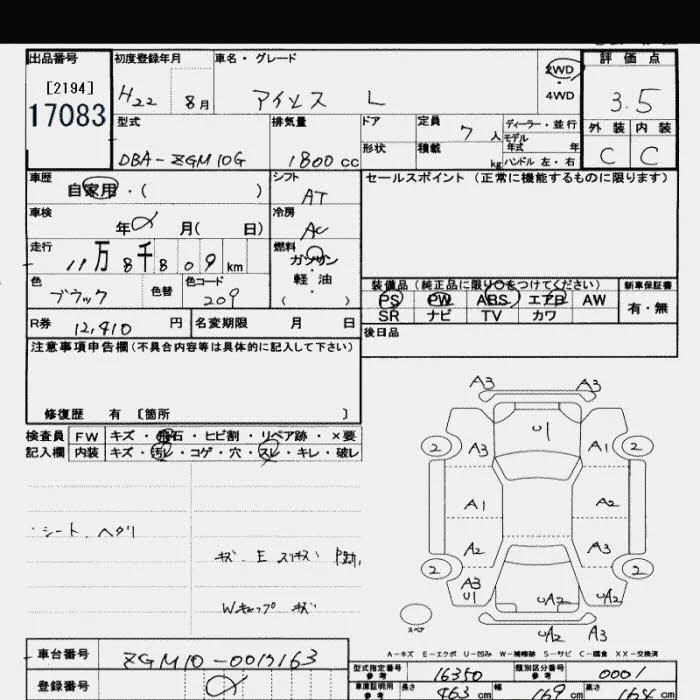 出品番号 初度登録年月 車名・グレード 2WD 4WD 評価点
[2194]
17083
H22 8月 アイシス L 3.5
型式 排気量 ドア 定員 7人 ディーラー・並行 外装 内装
モデル年式 年
形状 積載 kg ハンドル 左・右
DBA-ZGM10G 1800cc C C
車歴 自家用・( ) シフト AT セールスポイント(正常に機能するものに限ります)
車検 年 月( 日) 冷房 AC
走行 11万8千809km 燃料 ガソリン
軽・油
( ・ )
色 ブラック 色替 色コード 209
装備品(純正品に限り○をつけてください) 新車保証書
PS PW ABS エアB AW 有・無
SR ナビ TV カワ
R券 12,410円 名変期限 月 日 後日品
注意事項申告欄(不具合内容等は具体的に記入して下さい)
修復歴 有 〔箇所 〕
検査員 FW キズ・飛石・ヒビ割・リペア跡・×要
記入欄 内装 キズ・汚レ・コゲ・穴・スレ・キレ・破レ
・シート、ヘタリ
キズ、E スリキズ P跡、
Wキャップ キズ
A3 A3
U1
2 A3 A1 2
A1 A2
A2 A3
2 2
A3 U1 UA2 UA2
UA2 A3
スペア
A-キズ E-エクボ U-凹み W-補修跡 S-サビ C-腐食 XX-交換済
車台番号 ZGM10-0013163
登録番号
型式指定番号 参考 16350 類別区分番号 参考 0001
車庫証明用 参考 長さ 463cm 幅 169cm 高さ 164cm